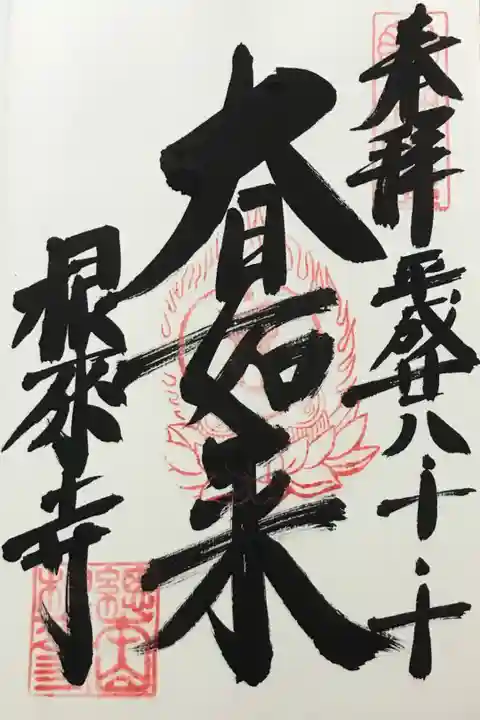 奉拝 平成廿八・十・十
大日如来
根來寺